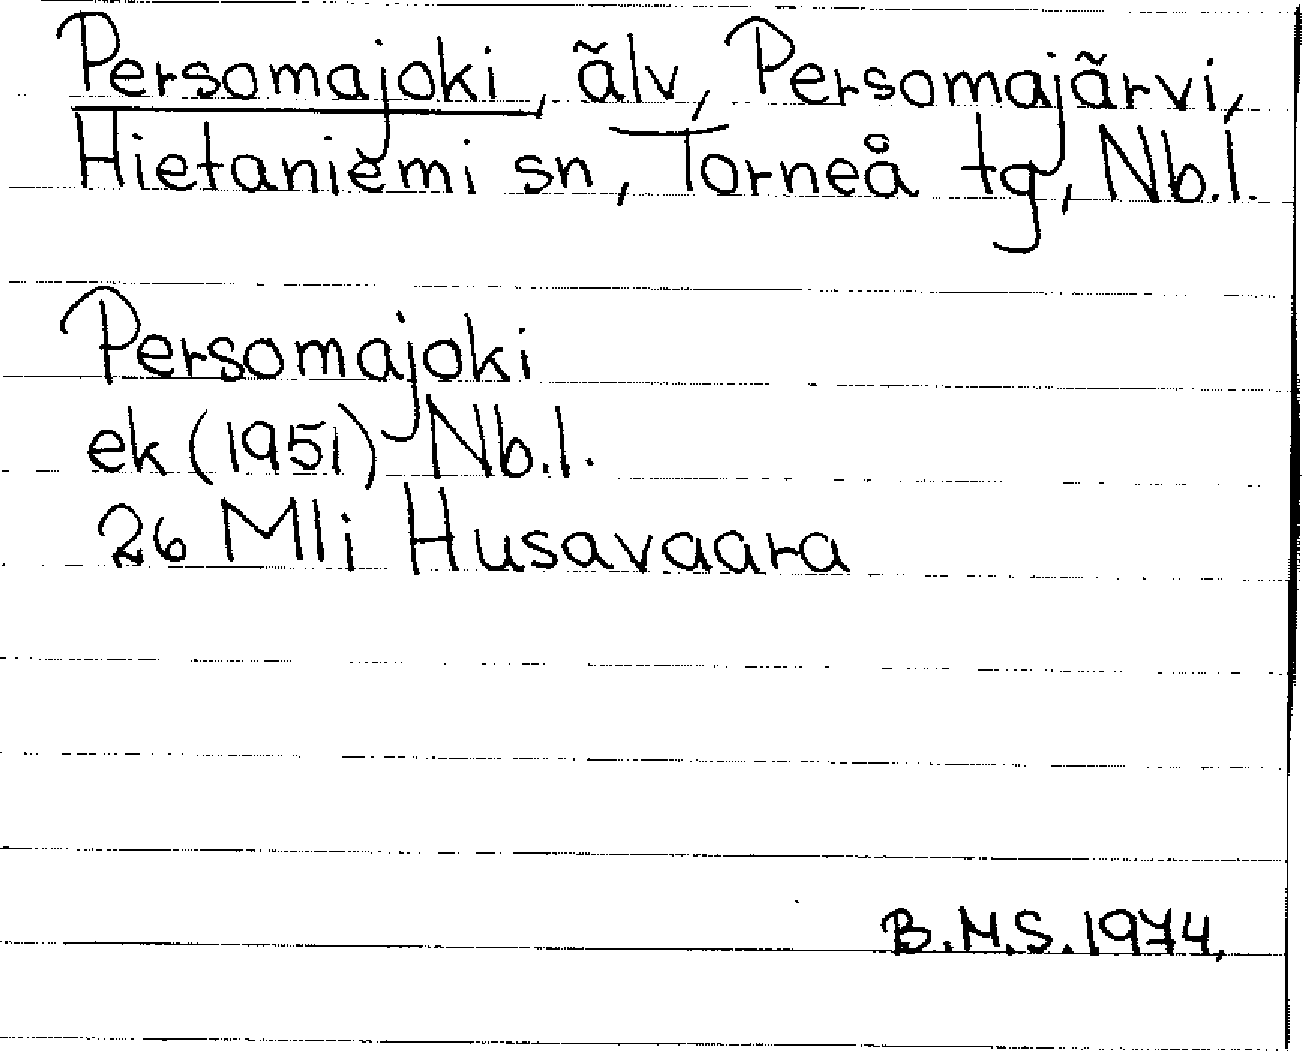 Persomajoki, älv, Persomajärvi,
Hietaniemi sn, Torneå tg, Nb.l.
Persomajoki
ek (1951) Nb.l.
26 Mli Husavaara
B.M.S. 1974.